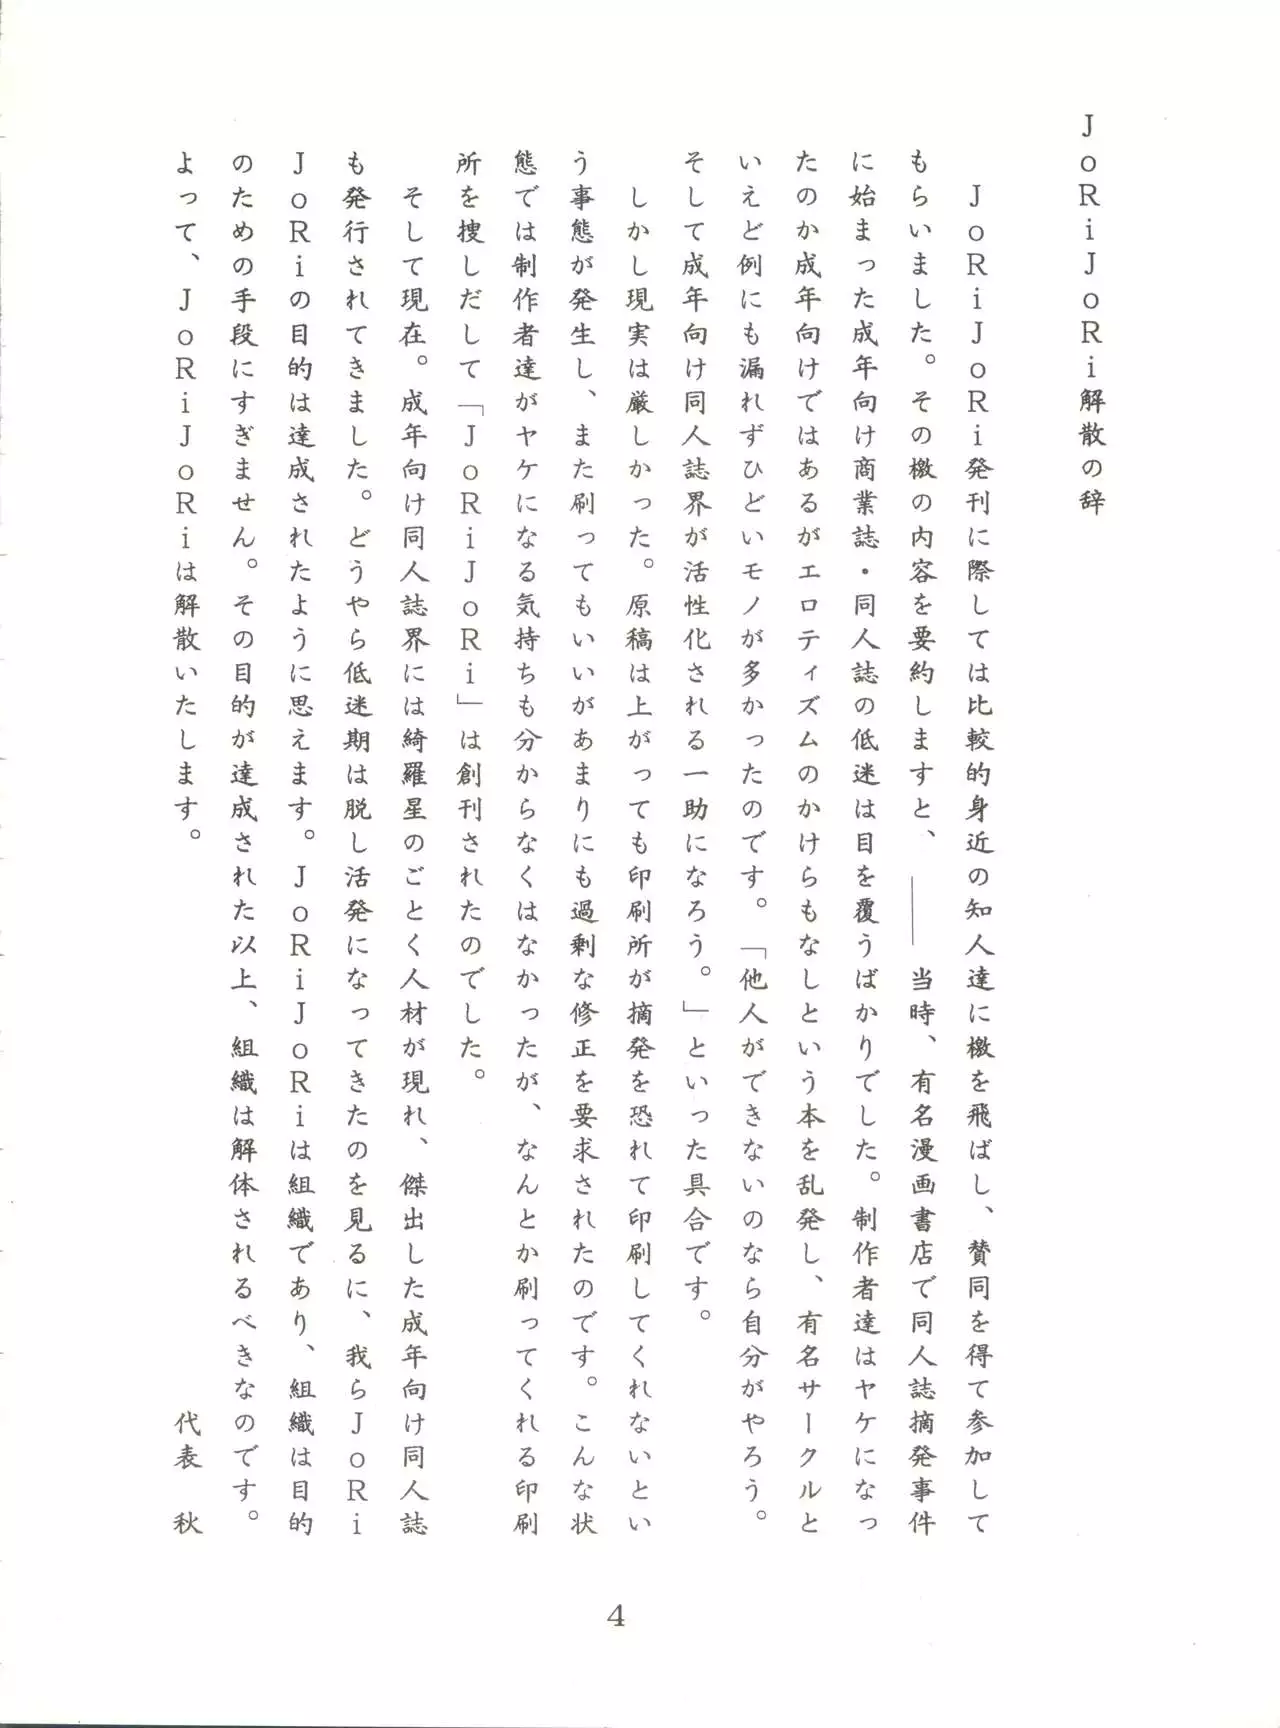 JoRiJoRi解散の辞
JoRiJoRi発刊に際しては比較的身近の知人達に檄を飛ばし、賛同を得て参加して
もらいました。その檄の内容を要約しますと、――当時、有名漫画書店で同人誌摘発事件
に始まった成年向け商業誌・同人誌の低迷は目を覆うばかりでした。制作者達はヤケになっ
たのか成年向けではあるがエロティズムのかけらもなしという本を乱発し、有名サークルと
いえど例にも漏れずひどいモノが多かったのです。「他人ができないのなら自分がやろう。
そして成年向け同人誌界が活性化される一助になろう。」といった具合です。
しかし現実は厳しかった。原稿は上がっても印刷所が摘発を恐れて印刷してくれないとい
う事態が発生し、また刷ってもいいがあまりにも過剰な修正を要求されたのです。こんな状
態では制作者達がヤケになる気持ちも分からなくはなかったが、なんとか刷ってくれる印刷
所を捜しだして「JoRiJoRi」は創刊されたのでした。
そして現在。成年向け同人誌界には綺羅星のごとく人材が現れ、傑出した成年向け同人誌
も発行されてきました。どうやら低迷期は脱し活発になってきたのを見るに、我らJoRi
JoRiの目的は達成されたように思えます。JoRiJoRiは組織であり、組織は目的
のための手段にすぎません。その目的が達成された以上、組織は解体されるべきなのです。
よって、JoRiJoRiは解散いたします。
代表 秋
4